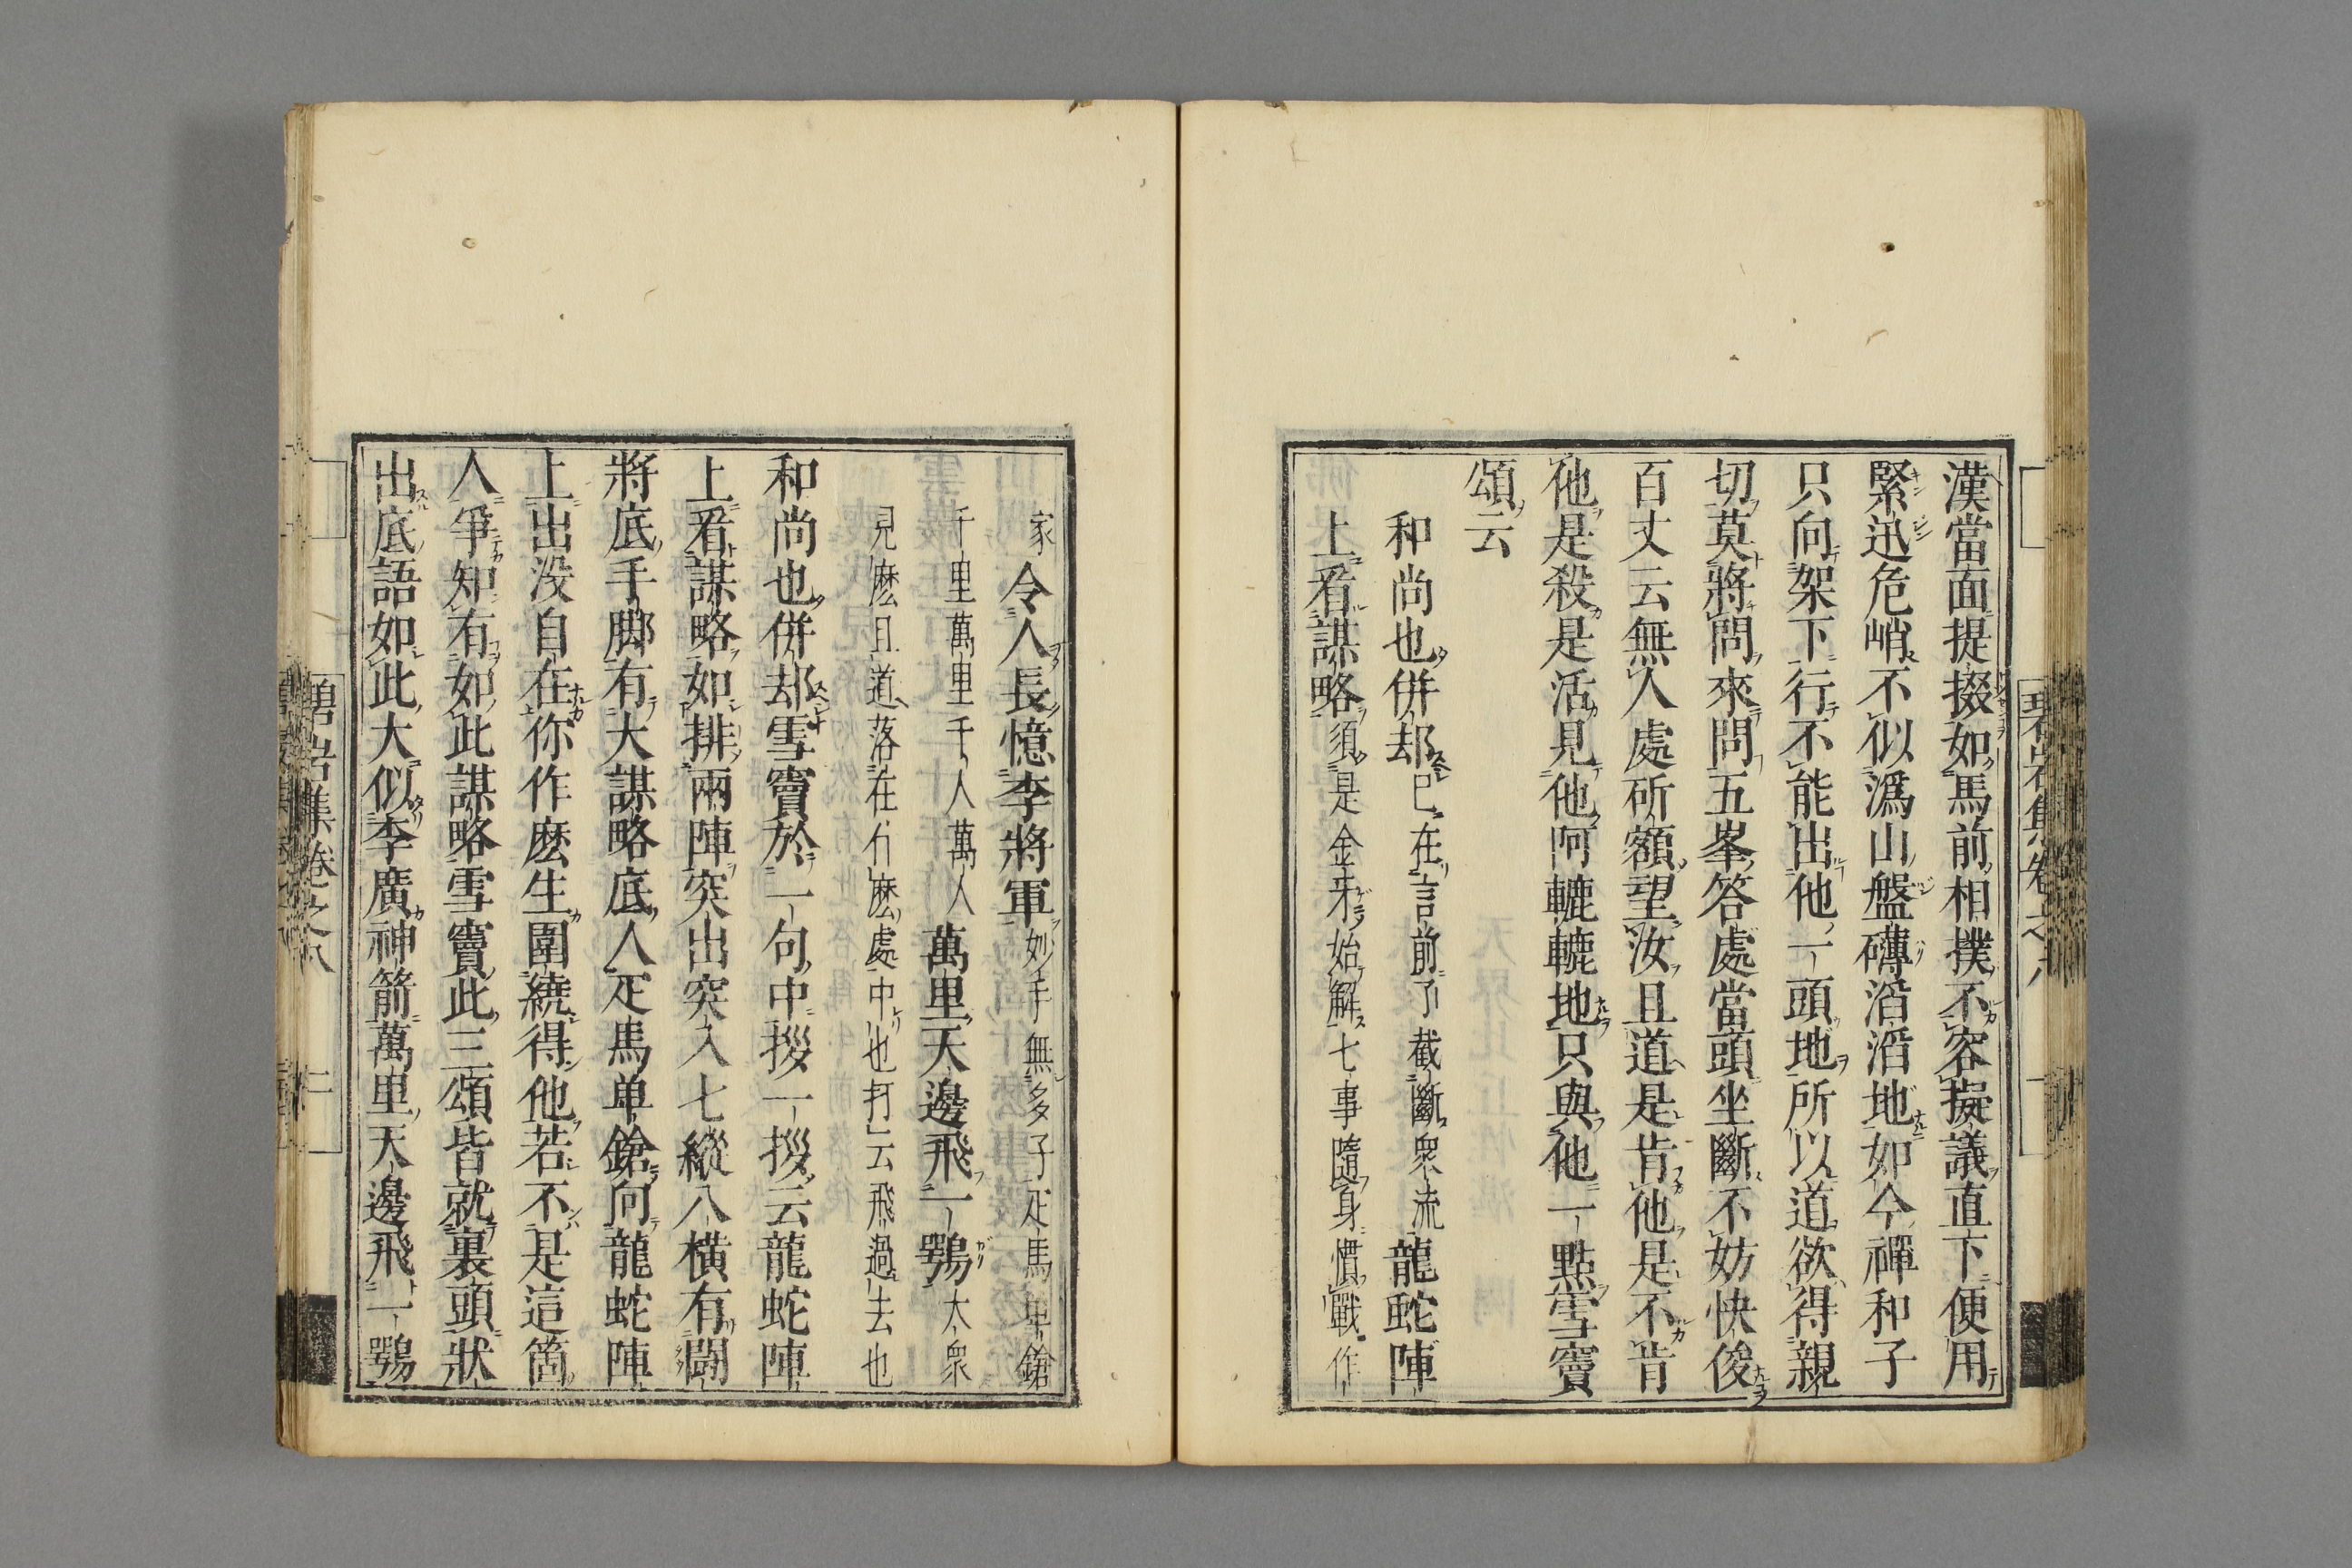 漢當面提掇如馬前相撲不容擬議直下便用
緊迅危峭不似潙山盤礴滔滔地如今禪和子
只向架下行不能出他一頭地所以道欲得親
切莫將問來問五峯答處當頭坐斷不妨快俊
百丈云無人處斫額望汝且道是肯他是不肯
他是殺是活見他阿轆轆地只與他一點雪竇
頌云
和尚也併却已在言前了截斷衆流龍蛇陣
上看謀略須是金牙始解七事隨身慣戰作
家令人長憶李將軍妙手無多子疋馬単鎗
千里萬里千人萬人萬里天邊飛一鶚大衆
見麽且道落在什麽處中也打云飛過去也
和尚也併却雪竇於一句中拶一拶云龍蛇陣
上看謀略如排兩陣突出突入七縱八横有鬪
將底手脚有大謀略底人疋馬单鎗向龍蛇陣
上出没自在你作麽生圍繞得他若不是這箇
人爭知有如此謀略雪竇此三頌皆就裏頭狀
出底語如此大似李廣神箭萬里天邊飛一鶚
碧岩集卷之八
二